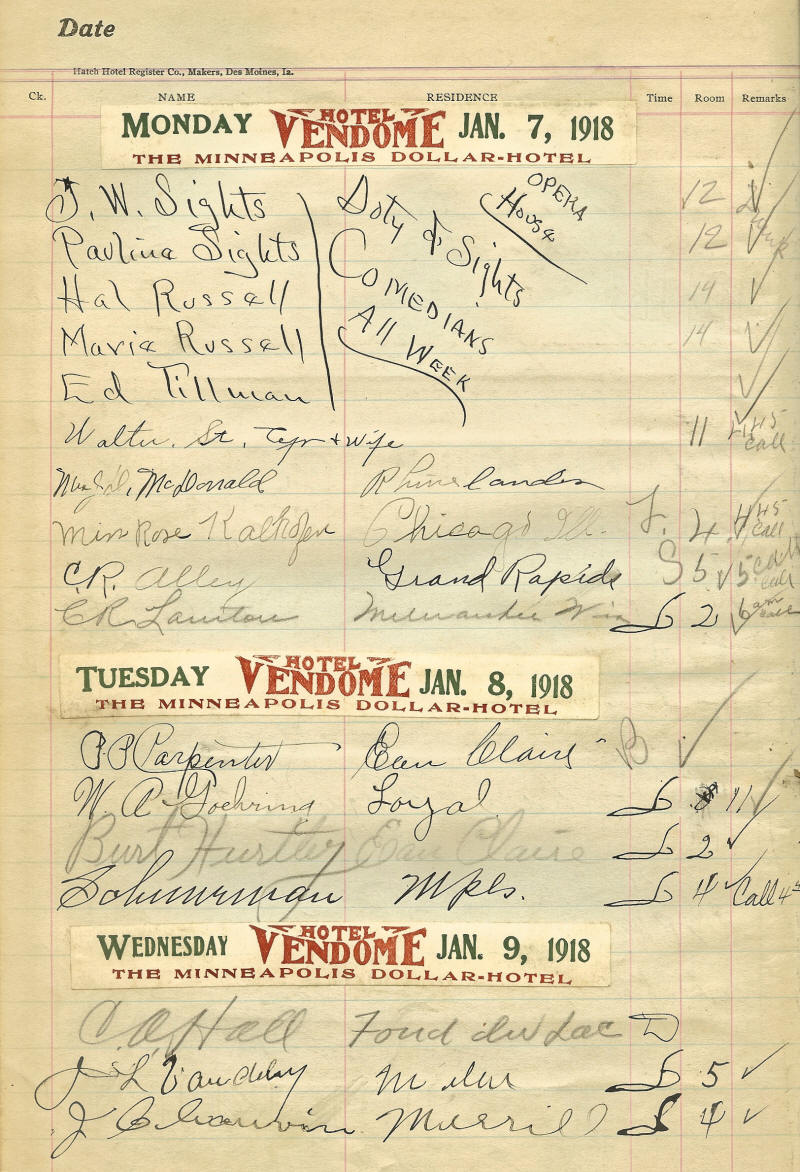 Date
Hatch Hotel Register Co., Makers, Des Moines, Ia.
Ck. NAME RESIDENCE Time Room Remarks
MONDAY HOTEL VENDOME JAN. 7, 1918
THE MINNEAPOLIS DOLLAR-HOTEL
J. W. Sights Doty & Sights OPERA House 12
Paulina Sights COMEDIANS 12
Hal Russell All Week 14
Marie Russell 14
Ed Tillman
Walter St. & wife 11 Call
McDonald Rhinelander
Miss Rose Kalhofen Chicago Ill. 4 Call
C.R. Alley Grand Rapids S 5 5 Call
C R Milwaukee Wis 2 6 am Call
TUESDAY HOTEL VENDOME JAN. 8, 1918
THE MINNEAPOLIS DOLLAR-HOTEL
P P Carpenter Eau Claire B
W. A. Goehring Loyal L 11
Burt Hurtley Eau Claire L 2
Schunrman Mpls. L 4 Call
WEDNESDAY HOTEL VENDOME JAN. 9, 1918
THE MINNEAPOLIS DOLLAR-HOTEL
C A Hall Fond du Lac D
J L L 5
J Merrill L 4